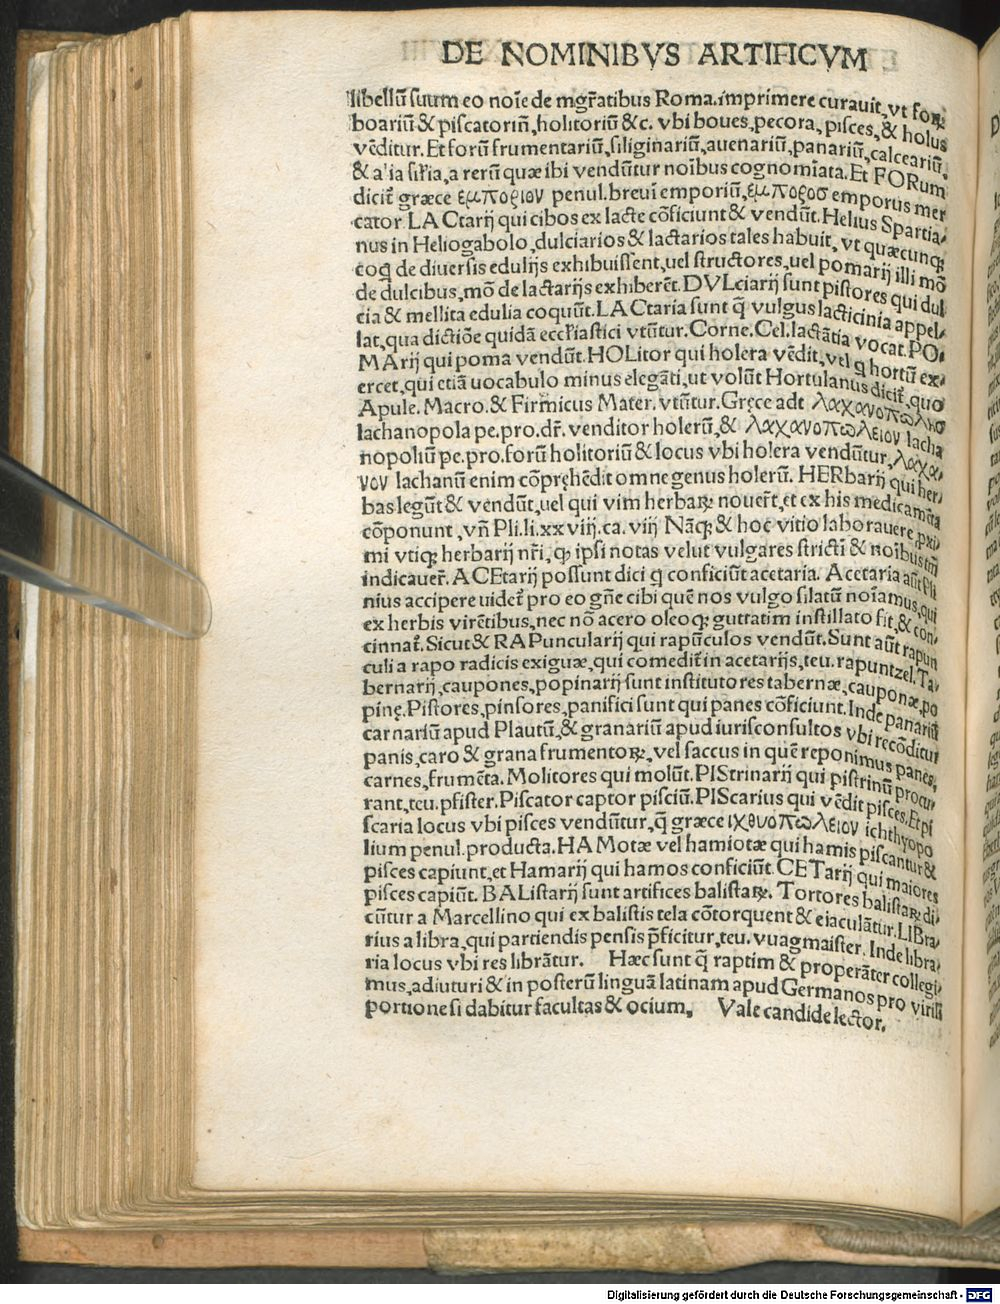 DE NOMINIBVS ARTIFICVM
libellū suum eo noīe de mgr̄atibus Roma.imprimere curauit, vt for
boariū & piscatoriū, holitoriū &c. vbi boues, pecora, pisces, & holus
vēditur. Et forū frumentariū, siliginariū, auenariū, panariū, calceariū,
& alia sil̄ia, a rerū quæ ibi vendūtur noībus cognomīata. Et FORum
dicit̄ græce εμποριον penul. breui emporiū, εμποροσ emporus mer
cator LACtarij qui cibos ex lacte cōficiunt & vendūt. Helius Spartia/
nus in Heliogabolo, dulciarios & lactarios tales habuit, vt quæcunq;
coq de diuersis edulijs exhibuissent, uel structores, uel pomarij illi mō
de dulcibus, mō de lactarijs exhiberēt. DVLciarij sunt pistores qui dul
cia & mellita edulia coquūt. LACtaria sunt q̄ vulgus lacticinia appel/
lat, qua dictiōe quidā eccl̄iastici vtūtur. Corne. Cel. lactātia vocat. PO/
MArij qui poma vendūt. HOLitor qui holera vēdit, vel q hortū ex/
ercet, qui etiā uocabulo minus elegāti, ut volūt Hortulanus dicit̄, quo
Apule. Macro. & Firmicus Mater. vtūtur. Gręce adt λαχανοπωλησ
lachanopola pe. pro. dr̄. venditor holerū, & λαχανοπωλειον lacha
nopoliū pe. pro. forū holitoriū & locus vbi holera vendūtur, λαχα/
νον lachanū enim cōpręhēdit omne genus holerū. HERbarij qui her/
bas legūt & vendūt, uel qui vim herbaꝝ nouer̄t, et ex his medicamēta
cōponunt, vn̄ Pli. li. xxviij. ca. viij Nāq; & hoc vitio laborauere pxi/
mi vtiq; herbarij nr̄i, q; ipsi notas velut vulgares stricti & noībus tm̄
indicauer̄. ACEtarij possunt dici q conficiūt acetaria. Acetaria aūt Pli
nius accipere uidet̄ pro eo gn̄e cibi quē nos vulgo silatū noīamus, qui
ex herbis virētibus, nec nō acero oleoq; guttatim instillato fit, & con/
cinnat̄. Sicut & RAPuncularij qui rapūculos vendūt. Sunt aūt rapun
culi a rapo radicis exiguæ, qui comedit̄ in acetarijs, teu. rapuntzel. Ta/
bernarij, caupones, popinarij sunt institutores tabernæ, cauponæ, po
pinę. Pistores, pinsores, panifici sunt qui panes cōficiunt. Inde panariū
carnariūm apud Plautū, & granariūm apud iurisconsultos vbi recōditur
panis, caro & grana frumentoꝝ, vel saccus in quē reponimus panes,
carnes, frumēta. Molitores qui molūt. PIStrinarij qui pistrinū procu/
rant, teu. pfister. Piscator captor pisciū. PIScarius qui vēdit pisces. Et pi
scaria locus vbi pisces vendūtur, q̄ græce ιχθυοπωλειον ichthyopo
lium penul. producta. HAMotæ vel hamiotæ qui hamis piscantur &
pisces capiunt, et Hamarij qui hamos conficiūt CETarij qui maiores
pisces capiūt. BALIstarij sunt artifices balistaꝝ. Tortores balistaꝝ di/
cūtur a Marcellino qui ex balistis tela cōtorquent & eiaculātur. LIBra/
rius a libra, qui partiendis pensis p̄ficitur, teu. vuagmaister. Inde libra/
ria locus vbi res librātur. Hæc sunt q̄ raptim & properāter collegi/
mus, adiuturi & in posterū linguā latinam apud Germanos pro virili
portione si dabitur facultas & ocium. Vale candide lector.
Digitalisierung gefördert durch die Deutsche Forschungsgemeinschaft - DFG